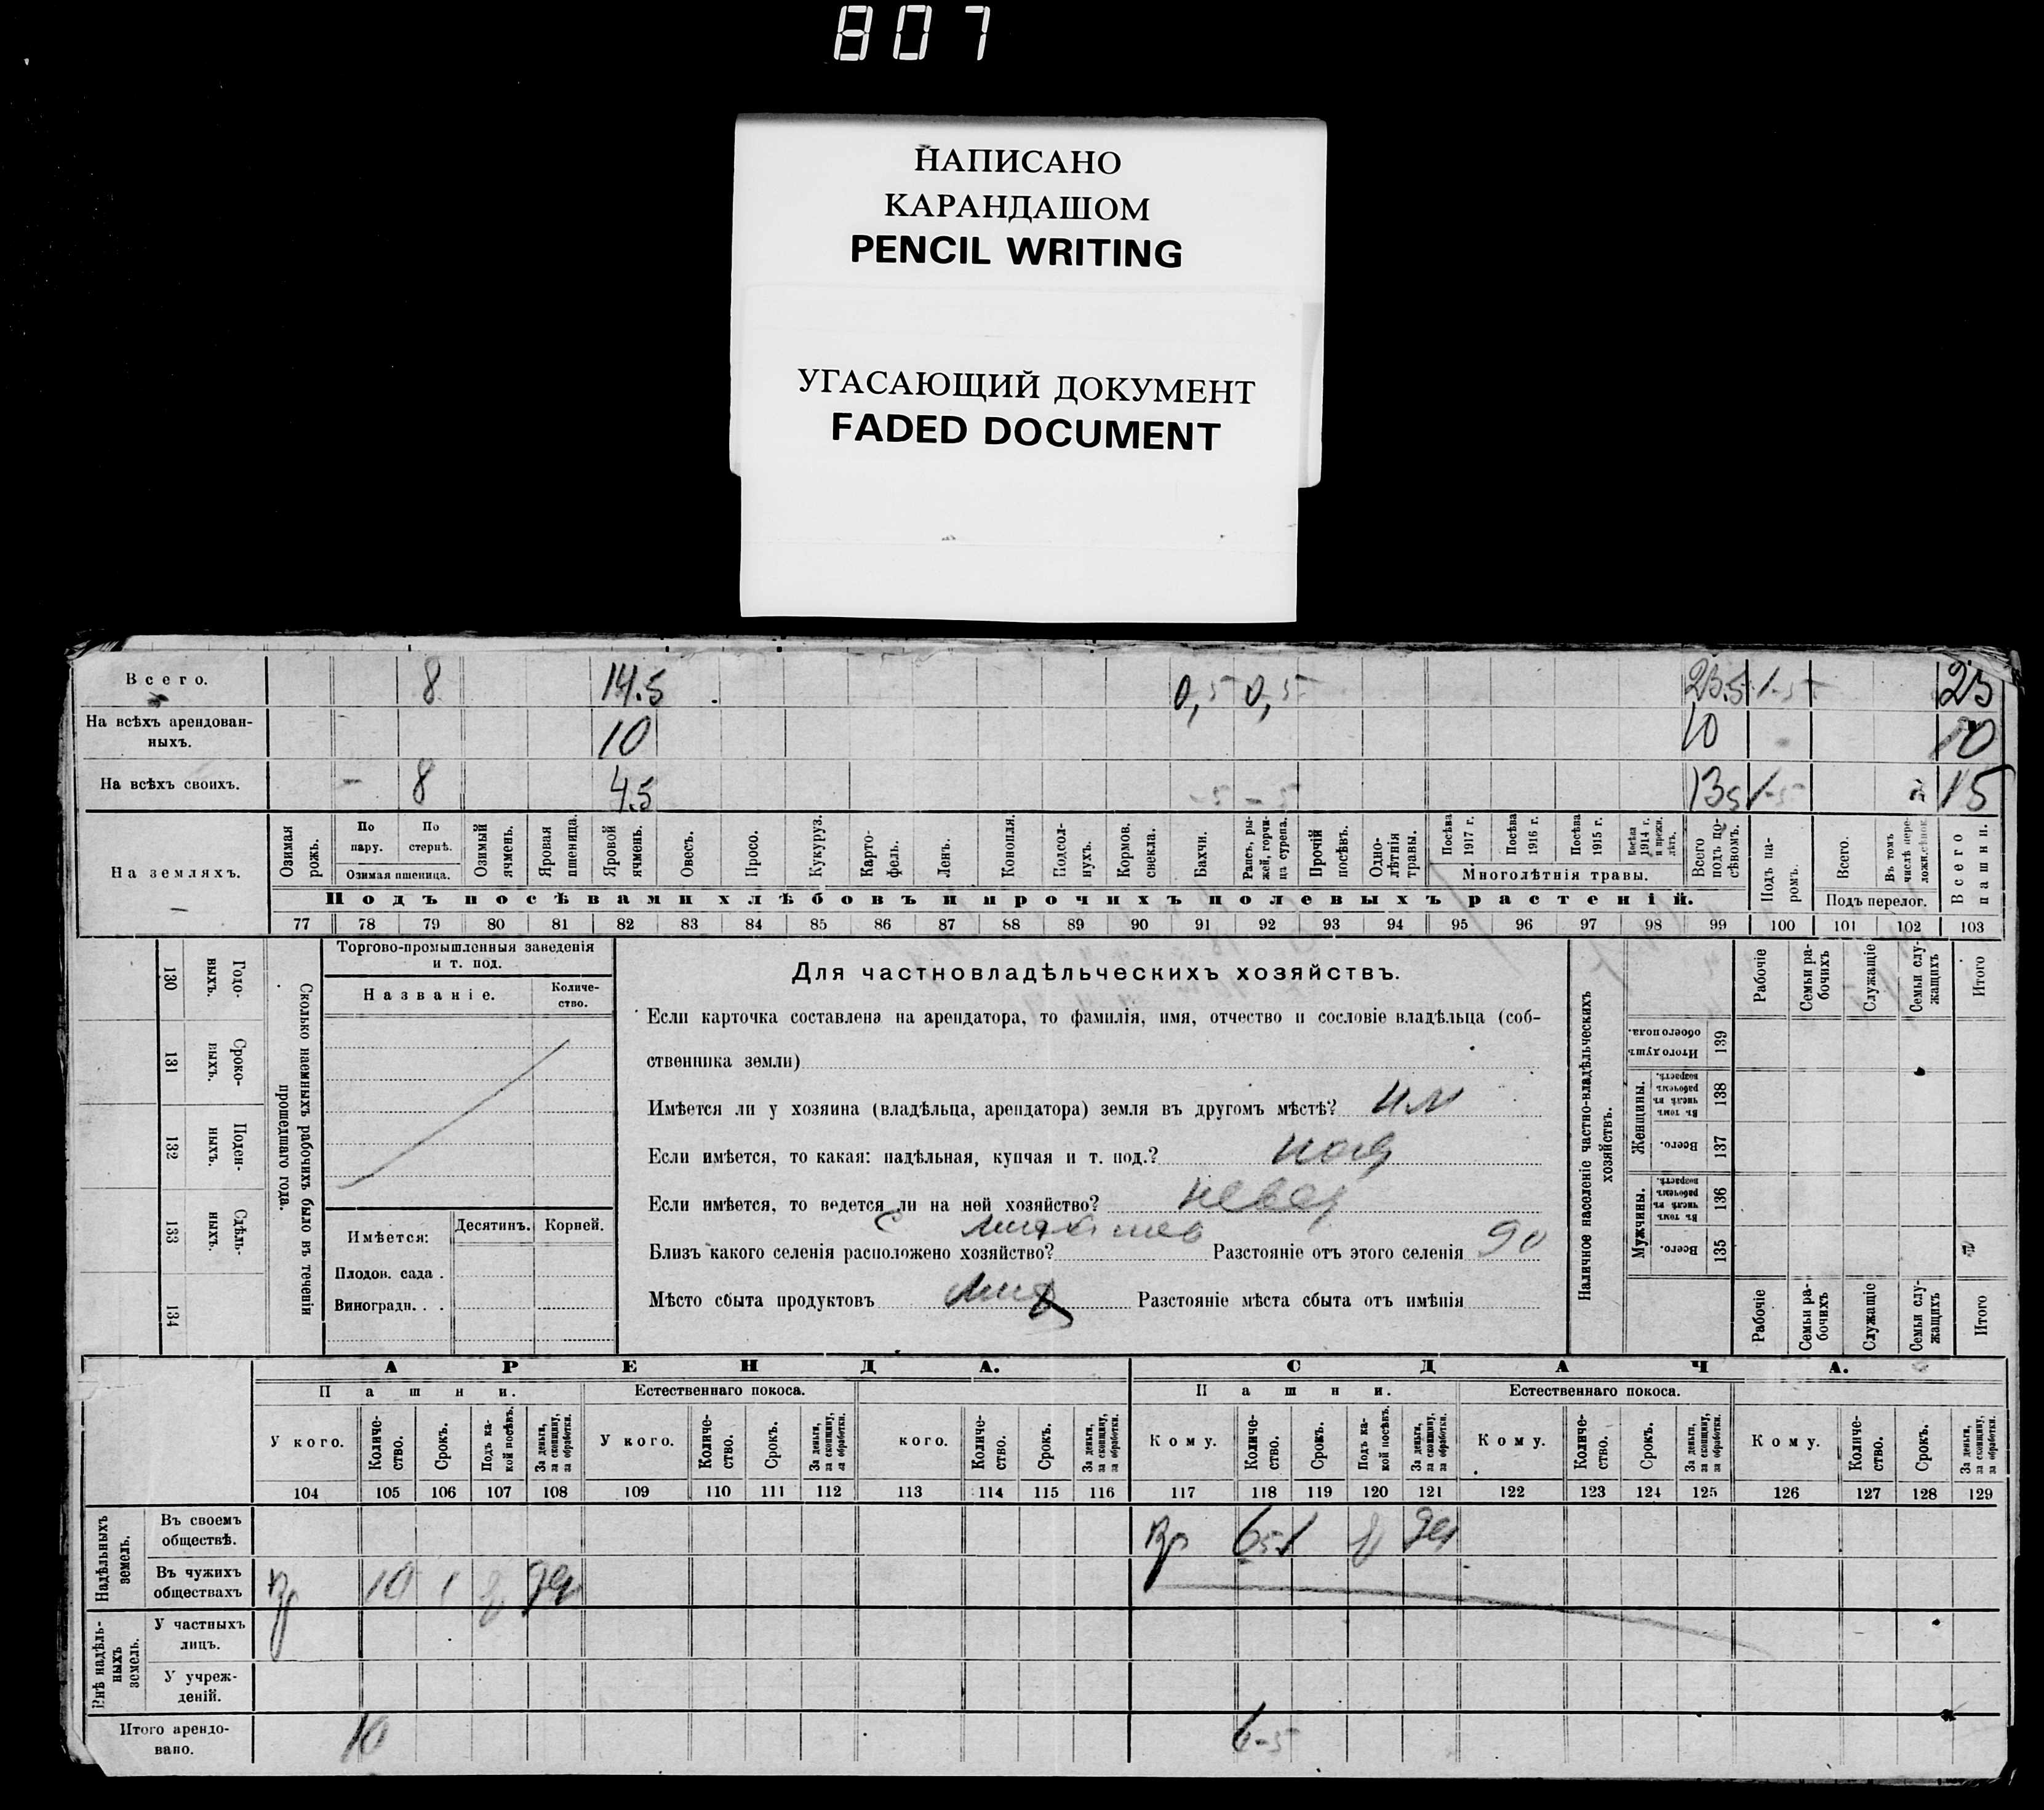 807
НАПИСАНО
КАРАНДАШОМ
PENCIL WRITING
УГАСАЮЩИЙ ДОКУМЕНТ
FADED DOCUMENT
Всего. 8 14.5 0,5 0,5 23.5 1-5 25
На всѣхъ арендован-
ныхъ. 10 10 10
На всѣхъ своихъ. - 8 4.5 -5 -5 13 5 1-5 15
На земляхъ.
Озимая рожь.
По пару.
По стернѣ.
Озимая пшеница.
Озимый ячмень.
Яровая пшеница.
Яровой ячмень.
Овесъ.
Просо.
Кукуруз.
Карто-
фель.
Ленъ.
Конопля.
Подсол-
нухъ.
Кормов. свекла.
Бахчи.
Рапсъ, ры-
жей, горчи-
ца сурепа.
Прочій посѣвъ.
Одно-
лѣтнія травы.
Посѣва 1917 г.
Посѣва 1916 г.
Посѣва 1915 г.
Посѣва 1914 г. и прежн. лѣтъ.
Многолѣтнія травы.
Всего подъ по-
сѣвомъ.
Подъ па-
ромъ.
Всего.
Въ томъ числѣ пере-
ложн. сѣнок.
Подъ перелог.
Всего пашни.
Подъ посѣвами хлѣбовъ и прочихъ полевыхъ растеній.
77 78 79 80 81 82 83 84 85 86 87 88 89 90 91 92 93 94 95 96 97 98 99 100 101 102 103
130 131 132 133 134
Годо-
выхъ.
Сроко-
выхъ.
Поден-
ныхъ.
Сдѣль-
ныхъ.
Сколько наемныхъ рабочихъ было въ теченіи
прошедшаго года.
Торгово-промышленныя заведенія
и т. под.
Названіе.
Количе-
ство.
Имѣется:
Десятинъ. Корней.
Плодов. сада .
Виноградн. . .
Для частновладѣльческихъ хозяйствъ.
Если карточка составлена на арендатора, то фамилія, имя, отчество и сословіе владѣльца (соб-
ственника земли)
Имѣется ли у хозяина (владѣльца, арендатора) земля въ другомъ мѣстѣ?
Если имѣется, то какая: надѣльная, купчая и т. под.?
Если имѣется, то ведется ли на ней хозяйство?
Близъ какого селенія расположено хозяйство? Разстояніе отъ этого селенія 90
Мѣсто сбыта продуктовъ Разстояніе мѣста сбыта отъ имѣнія
Наличное населеніе частно-владѣльческихъ
хозяйствъ.
Рабочіе
Семьи ра-
бочихъ
Служащіе
Семьи слу-
жащихъ
Итого
Итого душъ обоего пола. 139
Женщины.
Въ томъ числѣ въ рабочемъ возрастѣ. 138
Всего. 137
Мужчины.
Въ томъ числѣ въ рабочемъ возрастѣ. 136
Всего. 135
Рабочіе
Семьи ра-
бочихъ
Служащіе
Семьи слу-
жащихъ
Итого
АРЕНДА. СДАЧА.
Пашни. Естественнаго покоса. Пашни. Естественнаго покоса.
У кого. Количе-
ство. Срокъ. Подъ ка-
кой посѣвъ. За деньги, за скопщину, за обработки.
У кого. Количе-
ство. Срокъ. За деньги, за скопщину, за обработки.
кого. Количе-
ство. Срокъ. За деньги, за скопщину, за обработки.
Кому. Количе-
ство. Срокъ. Подъ ка-
кой посѣвъ. За деньги, за скопщину, за обработки.
Кому. Количе-
ство. Срокъ. За деньги, за скопщину, за обработки.
Кому. Количе-
ство. Срокъ. За деньги, за скопщину, за обработки.
104 105 106 107 108 109 110 111 112 113 114 115 116 117 118 119 120 121 122 123 124 125 126 127 128 129
Надѣльныхъ земель.
Въ своемъ
обществѣ. 1
Въ чужихъ
обществахъ 10 1
Внѣ надѣль-
ныхъ земель.
У частныхъ
лицъ.
У учреж-
деній.
Итого арендо-
вано. 10 6-5